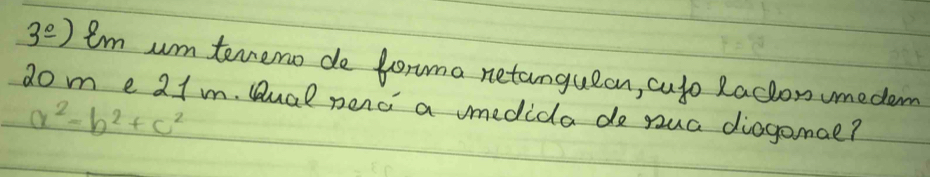 3º) Em um terreno de forma retangular, cujo lados medem
20 m e 21 m. Qual será a medida de sua diagonal?
a² = b² + c²